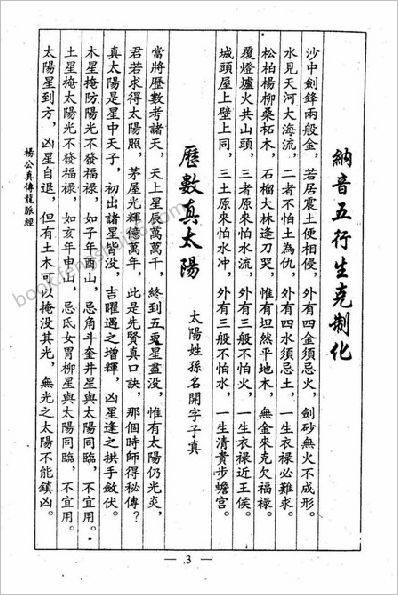 納音五行生克制化
沙中劍鋒兩般金，若居震土便相侵，外有四金須忌火，劍砂無火不成形。
水見天河大海流，二者不怕土為仇，外有四水須忌土，一生衣祿必難求。
松柏楊柳桑柘木，石榴大林逢刀哭，惟有坦然平地木，無金來克欠福祿。
覆燈爐火共山頭，三者原來怕水流，外有三般不怕火，一生衣祿近王侯。
城頭屋上壁上同，三土原來怕木冲，外有三般不怕木，一生清貴步蟾宮。
歷數真太陽
太陽姓孫名開字子真
當將歷數考諸天，天上星辰萬萬千，終到五更星盡没，惟有太陽仍光炎，
君若求得太陽照，茅屋光輝億萬年，此是先賢真口訣，那個時師得秘傳？
真太陽是星中天子，初出諸星皆没，吉曜遇之增輝，凶星逢之拱手斂伏。
木星掩防陽光不發福祿，如子年酉山，忌角斗奎井星與太陽同臨，不宜用。
土星掩太陽光不發福祿，如亥年申山，忌氐女胃柳星與太陽同臨，不宜用。
太陽星到方，凶星自退，但有土木可以掩没其光，無光之太陽不能鎮凶。
楊公真傳龍脈經
— 3 —